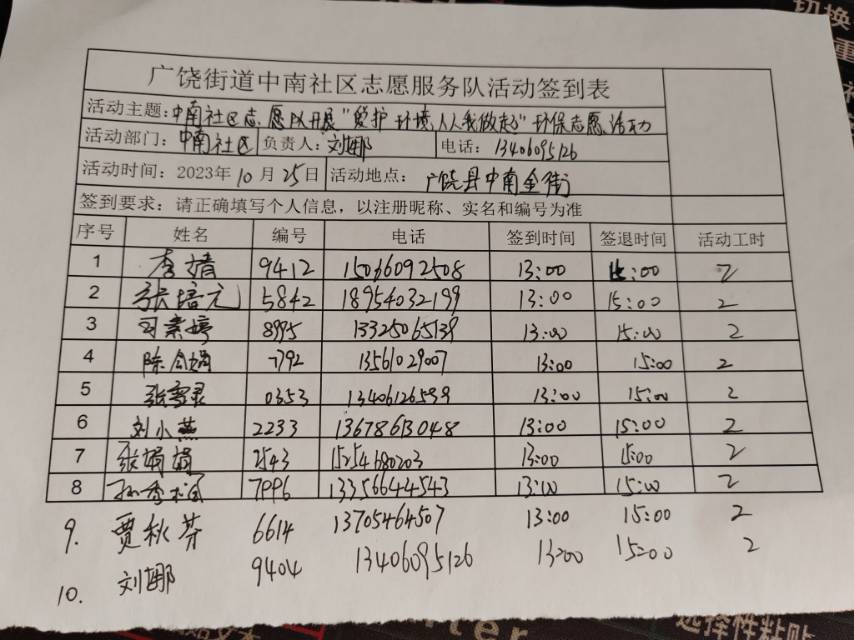 切换
广饶街道中南社区志愿服务队活动签到表
活动主题:中南社区志愿队开展"爱护环境,人人我做起"环保志愿活动
活动部门:中南社区 负责人:刘娜 电话:13406095126
活动时间:2023年10月25日 活动地点:广饶县中南金街
签到要求:请正确填写个人信息,以注册昵称、实名和编号为准
序号 姓名 编号 电话 签到时间 签退时间 活动工时
1 李婧 9412 15066092508 13:00 15:00 2
2 张培元 5842 18954032199 13:00 15:00 2
3 司素婷 8995 13325065139 13:00 15:00 2
4 陈 娟 7792 13561029007 13:00 15:00 2
5 张 灵 0353 13406126539 13:00 15:00 2
6 刘小燕 2233 13678613048 13:00 15:00 2
7 张娟娟 2543 15254680203 13:00 15:00 2
8 孙秀 7996 13356644543 13:00 15:00 2
9. 贾秋芬 6614 13705464507 13:00 15:00 2
10. 刘娜 9404 13406095126 13:00 15:00 2
选择性粘贴